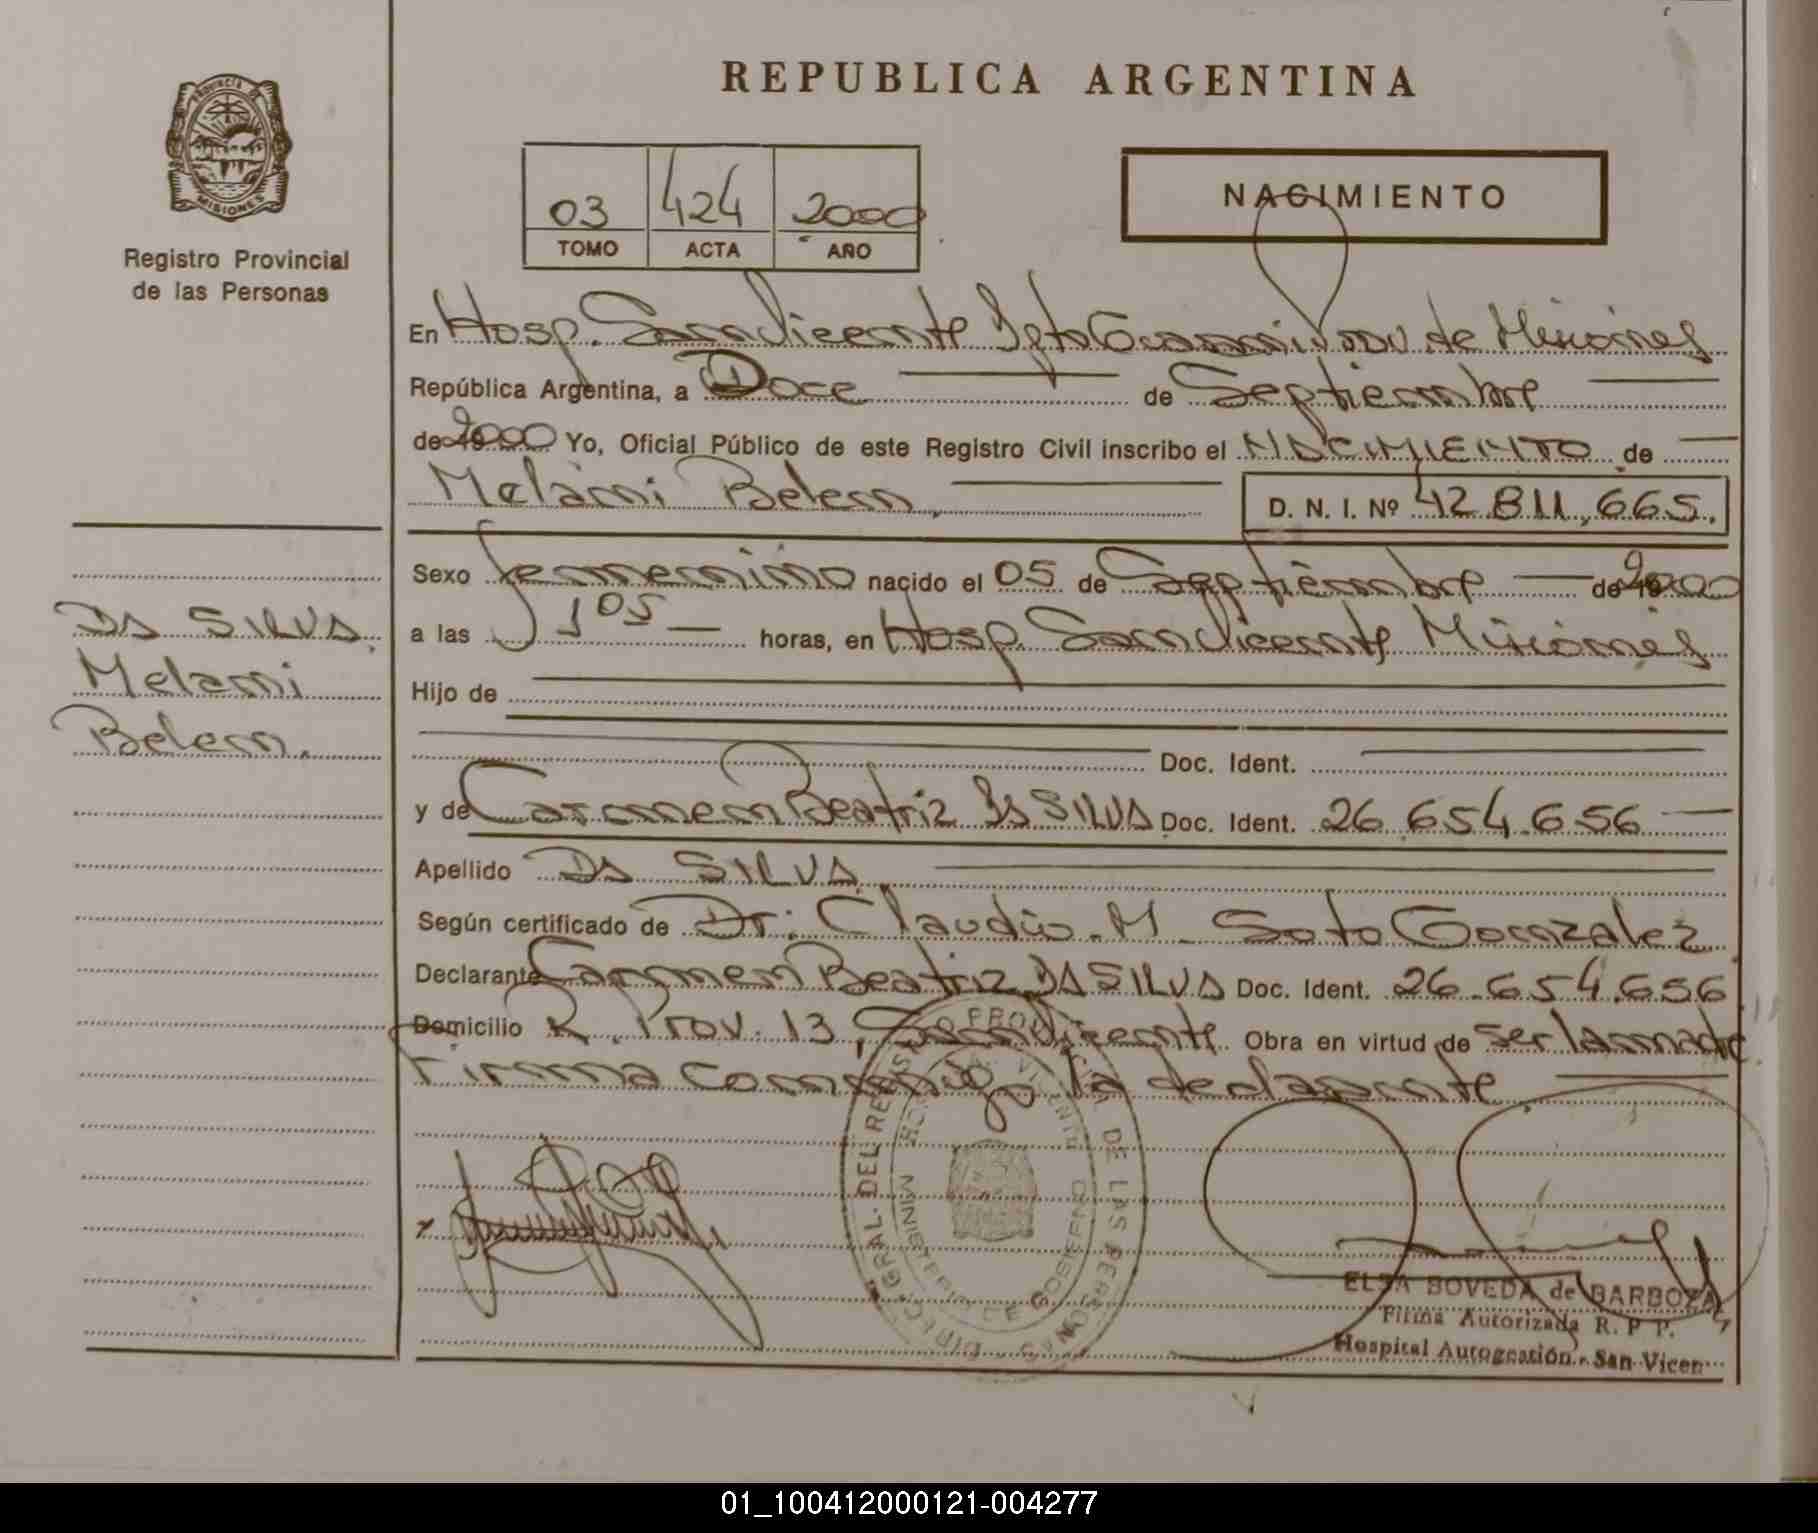 REPUBLICA ARGENTINA
PROVINCIA DE MISIONES
Registro Provincial
de las Personas
03 424 2000
TOMO ACTA AÑO
NACIMIENTO
En Hosp. San Vicente Dpto Guaraní Prov de Misiones
República Argentina, a Doce de Septiembre
de 2000 Yo, Oficial Público de este Registro Civil inscribo el NACIMIENTO de
Melani Belen. D. N. I. Nº 42.811.665.
Sexo femenino nacido el 05 de Septiembre de 2000
a las 1 05 horas, en Hosp. San Vicente Misiones
Hijo de
Doc. Ident.
y de Carmen Beatriz DA SILVA Doc. Ident. 26.654.656
Apellido DA SILVA.
Según certificado de Dr: Claudio M. Soto Gonzalez
Declarante Carmen Beatriz DA SILVA Doc. Ident. 26.654.656
Domicilio R. Prov. 13, San Vicente Obra en virtud de ser la madre
Firma conmigo la declarante
DA SILVA.
Melani
Belen.
DIREC. GRAL. DEL REGISTRO PROVINCIAL DE LAS PERSONAS
MINISTERIO DE GOBIERNO
ELSA BOVEDA de BARBOZA
Firma Autorizada R. P. P.
Hospital Autogestión - San Vicen
01_100412000121-004277